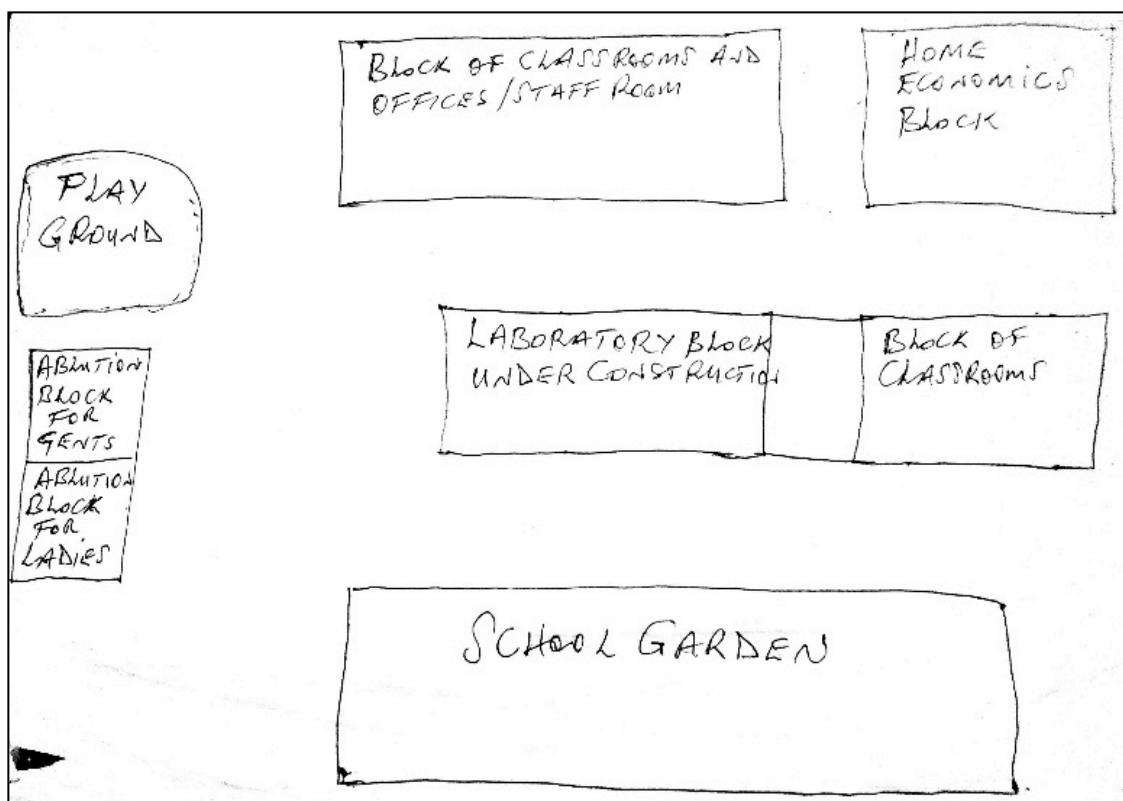 BLOCK OF CLASSROOMS AND
OFFICES/STAFF ROOM
HOME
ECONOMICS
BLOCK
PLAY
GROUND
LABORATORY BLOCK
UNDER CONSTRUCTION
BLOCK OF
CLASSROOMS
ABLUTION
BLOCK
FOR
GENTS
ABLUTION
BLOCK
FOR
LADIES
SCHOOL GARDEN